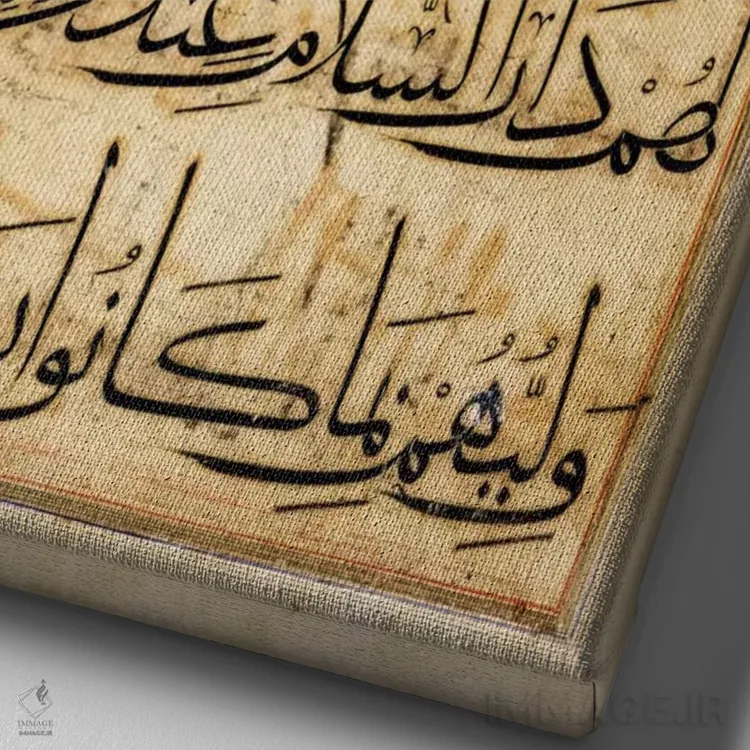 لَهُمْ دَارُ السَّلَامِ عِنْدَ
وَلِيُّهُمْ بِمَا كَانُوا
IMMAGE
IMMAGE.IR
IMMAGE.IR